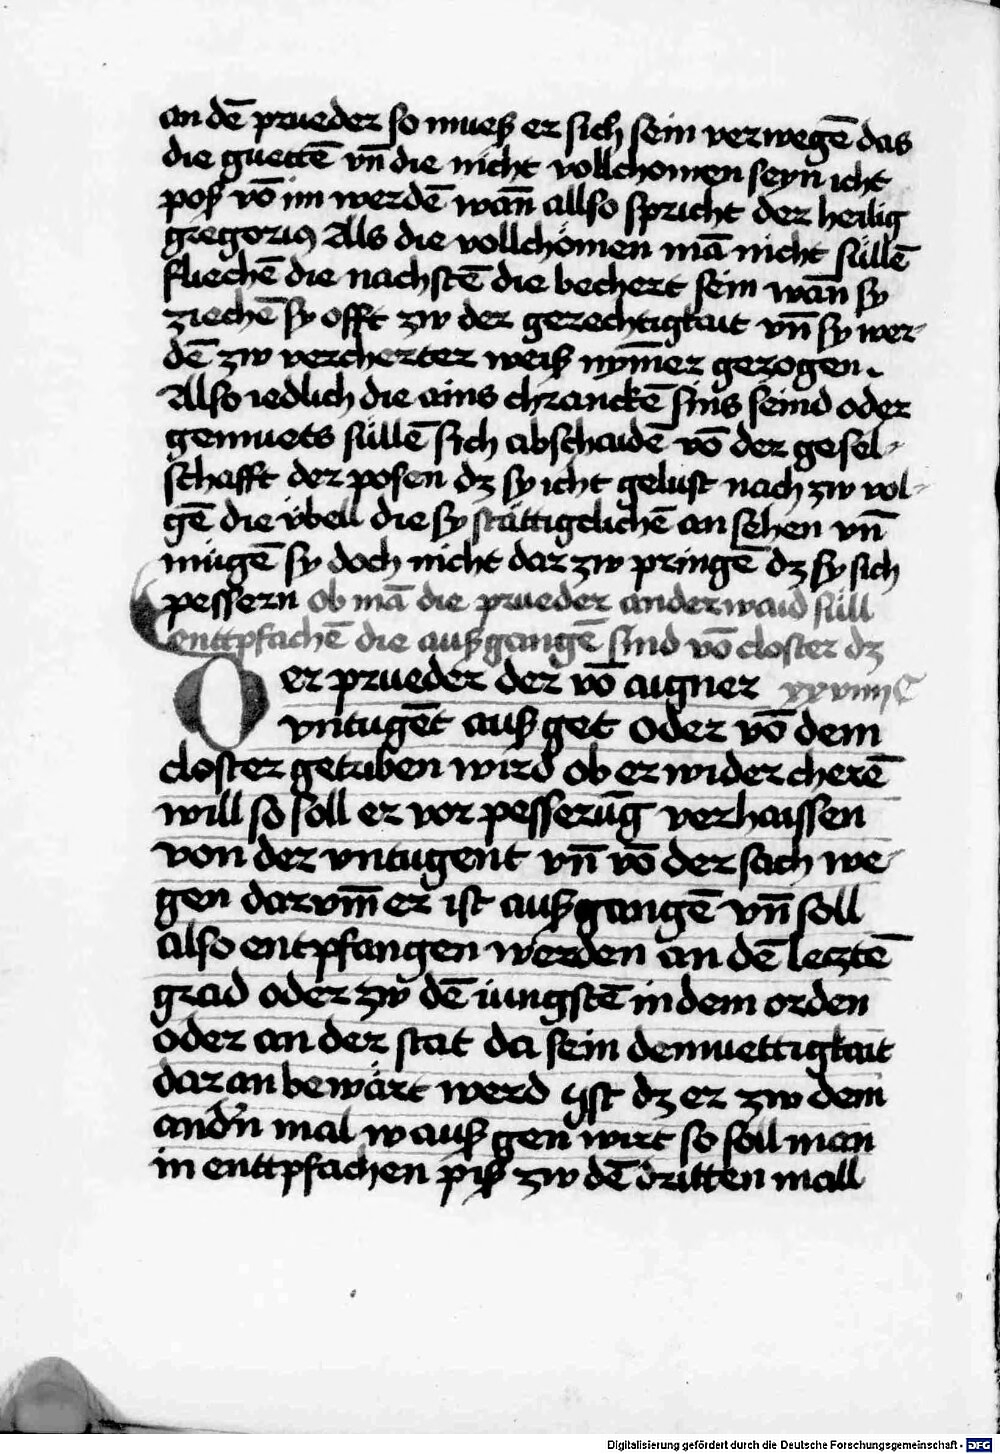 an dē prueder so mueß er sich sein verwegē das
die guettē vn̄ die nicht vollchomen seyn icht
poß vō im werdē wan̄ allso spricht der heilig
gregorius Als die vollchömen mā nicht süllē
fliechē die nachstē die bechert sein wan̄ sy
ziechē sy offt zw der gerechtigkait vn̄ sy wer-
dē zw vercherter weiß nym̄er gezogen.
Also iedlich die ains chranckē sins seind oder
gemuets süllē sich abschaidē vō der gesel-
schafft der posen dz sy icht gelust nach zw vol-
gē die v̈bell die sy stättigclichē an sehen vn̄
mügē sy doch nicht dar zw pringē dz sy sich
pessern ob mā die prueder anderwaid süll
enttpfachē die außgangē sind vō closter dz
Der prueder der vō aigner xxviiij C
vntugēt auß get oder vō dem
closter getriben wird ob er wider cherē
will so soll er vor pesserūg verhaissen
von der vntugent vn̄ vō der sach we-
gen darvm̄ er ist außgangē vn̄ soll
also entpfangen werden an dē lecztē
grad oder zw dē iungstē in dem orden
oder an der stat da sein demuettigkait
dar an bewärt werd Ist dz er zw dem
andn̄ mal w auß gen wirt so soll man
in enttpfachen piß zw dē dritten mall
Digitalisierung gefördert durch die Deutsche Forschungsgemeinschaft - DFG